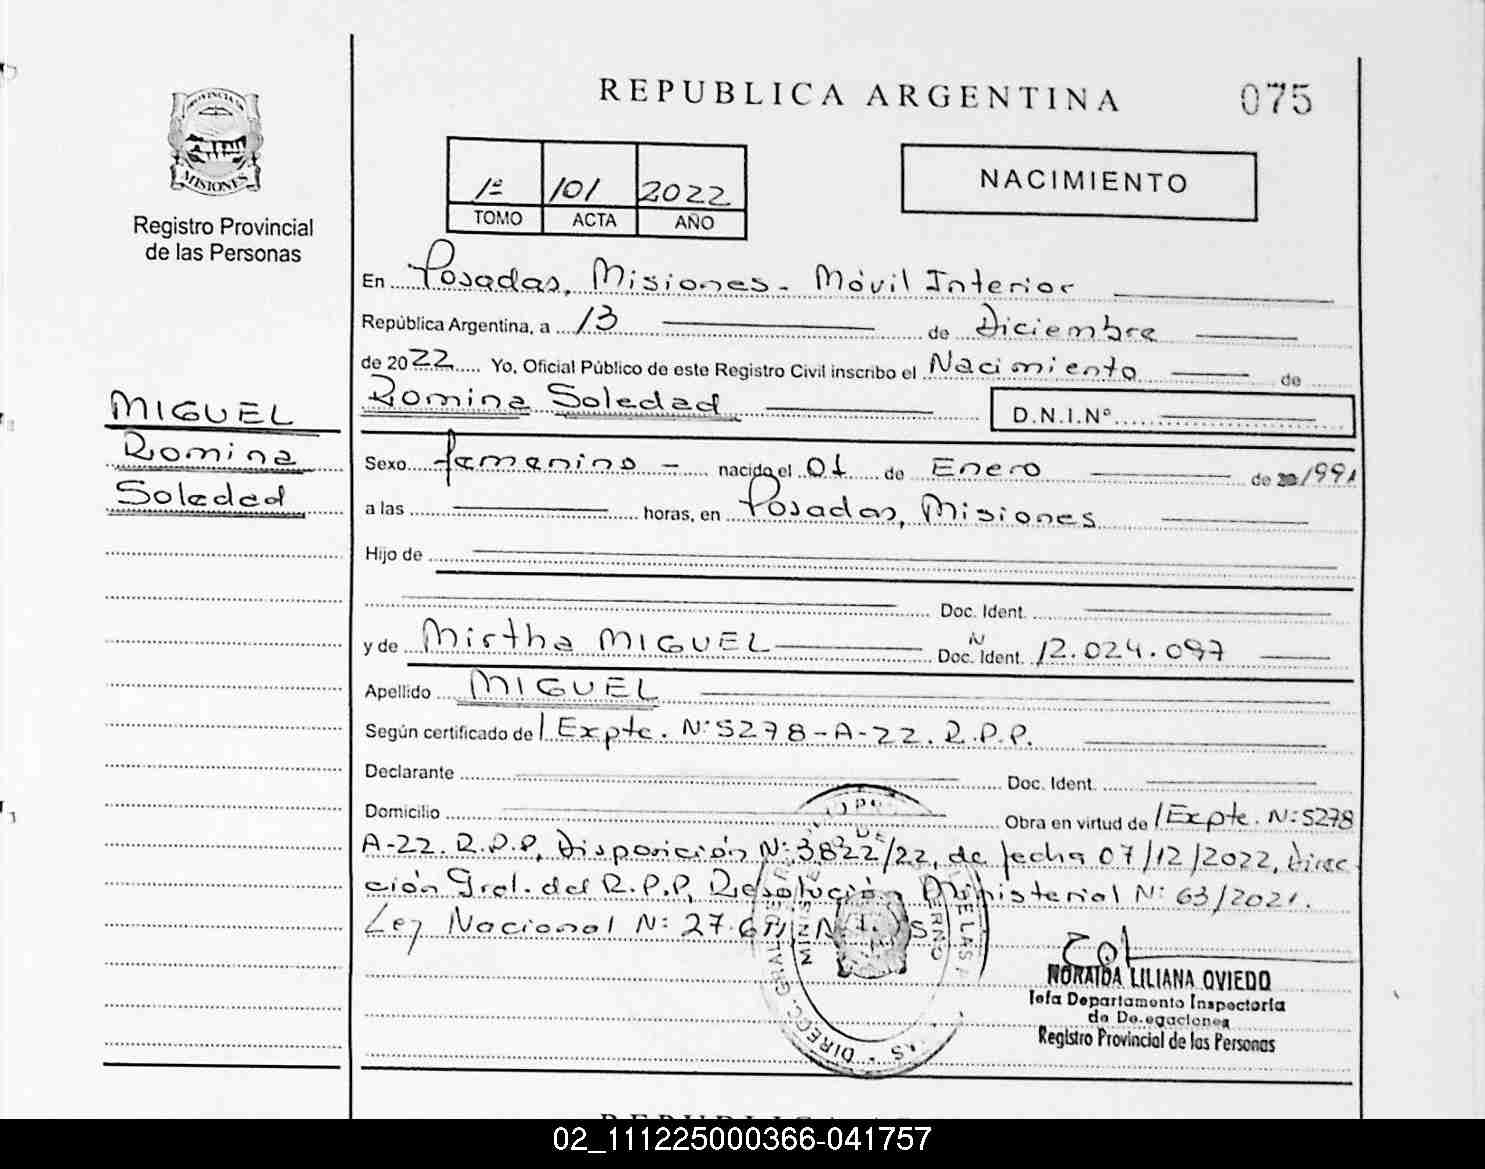 REPUBLICA ARGENTINA
075
PROVINCIA DE
MISIONES
Registro Provincial
de las Personas
1º 101 2022
TOMO ACTA AÑO
NACIMIENTO
En Posadas, Misiones - Móvil Interior
República Argentina, a 13 de Diciembre
de 2022 Yo, Oficial Público de este Registro Civil inscribo el Nacimiento de
Romina Soledad D.N.I.Nº
MIGUEL
Romina
Soledad
Sexo femenino - nacido el 01 de Enero de 1991
a las horas, en Posadas, Misiones
Hijo de
Doc. Ident.
y de Mirtha MIGUEL Doc. Ident. N 12.024.097
Apellido MIGUEL
Según certificado de / Expte. Nº 5278-A-22. R.P.P.
Declarante Doc. Ident.
Domicilio Obra en virtud de / Expte. Nº 5278
A-22. R.P.P. Disposición Nº 3822/22, de fecha 07/12/2022, Direc-
ción Gral. del R.P.P, Resolución Ministerial Nº 63/2021.
Ley Nacional Nº 27.6
NORAIDA LILIANA OVIEDO
Jefa Departamento Inspectoria
de Delegaciones
Registro Provincial de las Personas
02_111225000366-041757